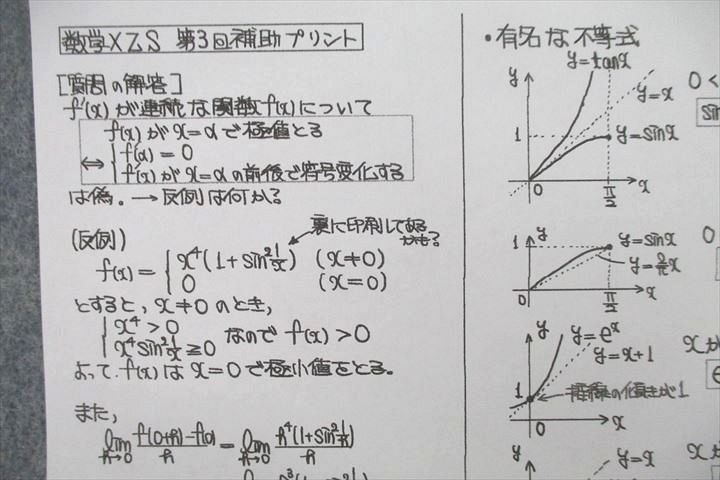 数学XZS 第3回補助プリント
[質問の解答]
f'(x)が連続な関数f(x)について
f(x)がx=αで極値とる
⇔ { f'(α)=0
f'(x)がx=αの前後で符号変化する
は偽。→反例は何かな
(反例)
裏に印刷してある
f(x)= { x⁴(1+sin²1/x) (x≠0)
0 (x=0)
とすると、x≠0のとき,
{ x⁴>0
x⁴sin²1/x≧0 なので f(x)>0
よって.f(x)はx=0で極小値をとる。
また,
lim h→0 f(0+h)-f(0)/h = lim h→0 h⁴(1+sin²1/h)/h
・有名な不等式
y=tanx
y
y=x
1
y=sinx
0
π/2
x
0<
sin
y
1
y=sinx
y=2/πx
0
π/2
x
0
y
y=eˣ
y=x+1
1
接線の傾きが1
0
x
xが
e
y
y=x
xが